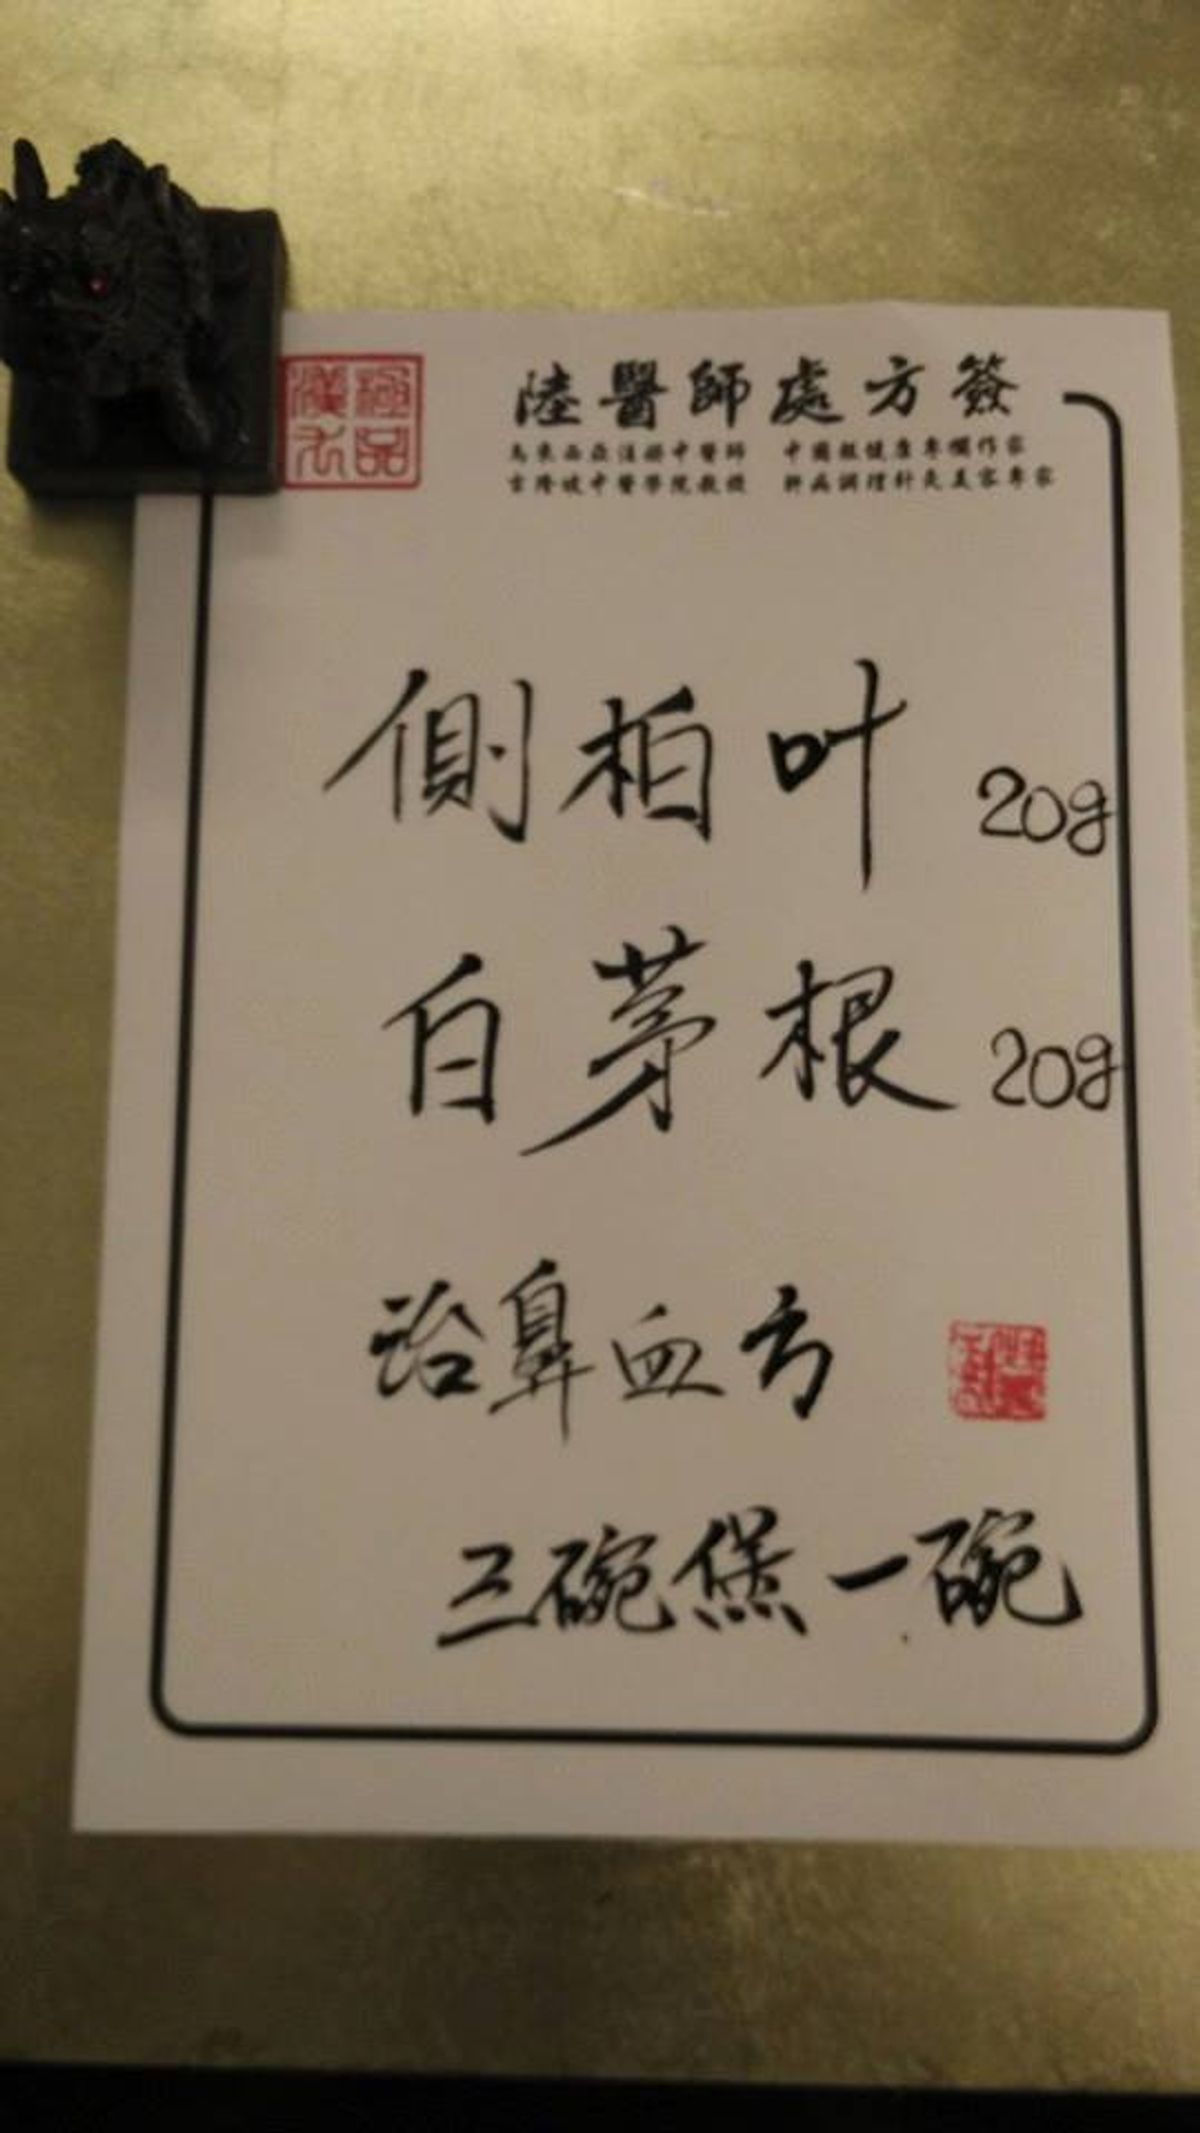 極品
漢方
陸醫師處方簽
馬來西亞注册中醫師 中國報健康專欄作家
吉隆坡中醫學院教授 肝病調理針灸美容專家
側柏叶 20g
白茅根 20g
治鼻血方
三碗煲一碗